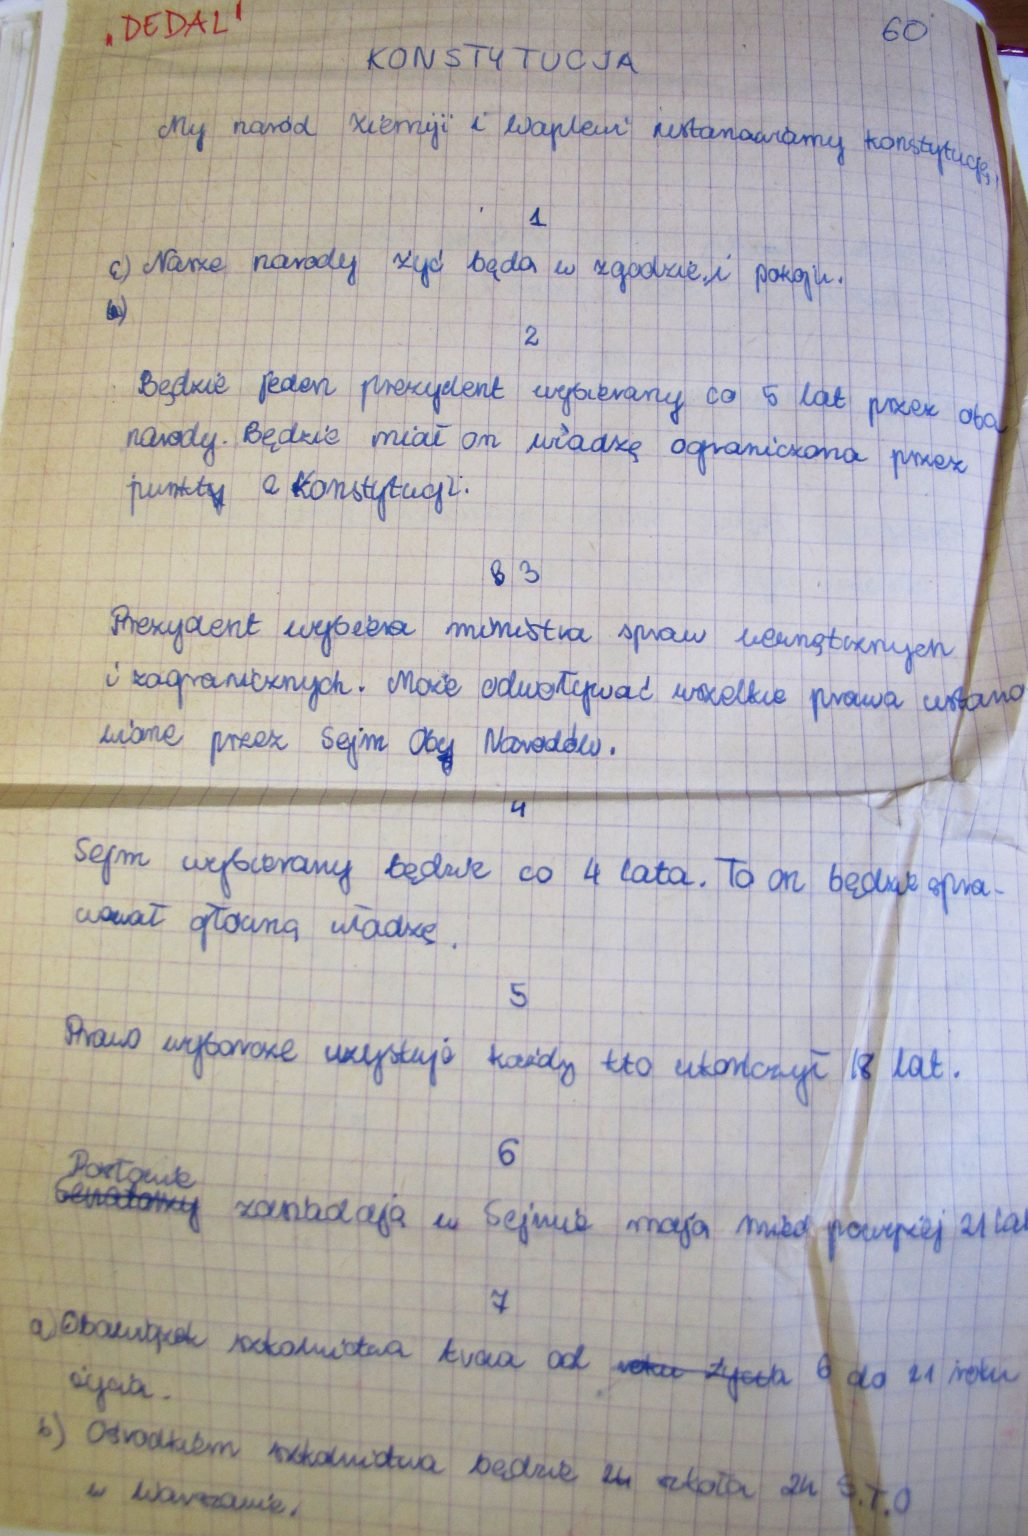 „DEDAL"
60
KONSTYTUCJA
My naród Ziemiji i Waplewi ustanawiamy konstytucję,
1
a) Nasze narody żyć będa w zgodzie i pokoju.
b)
2
Będzie jeden prezydent wybierany co 5 lat przez oba
narody. Będzie miał on władzę ograniczona przez
punkty 2 Konstytucji.
3
Prezydent wybiera ministra spraw wewnętrznych
i zagranicznych. Może odwoływać wszelkie prawa ustano
wione przez Sejm Oby Narodów.
4
Sejm wybierany będzie co 4 lata. To on będzie spra-
wował główną władzę.
5
Prawo wyborcze uzyskuje każdy kto ukończył 18 lat.
6
Posłowie
Senatorzy zasiadają w Sejmie maja mieć powyżej 21 lat
7
a) Obowiązek szkolnictwa trwa od roku życia 6 do 21 roku
życia.
b) Ośrodkiem szkolnictwa będzie 24 szkoła 24 S.T.O
w Warszawie.